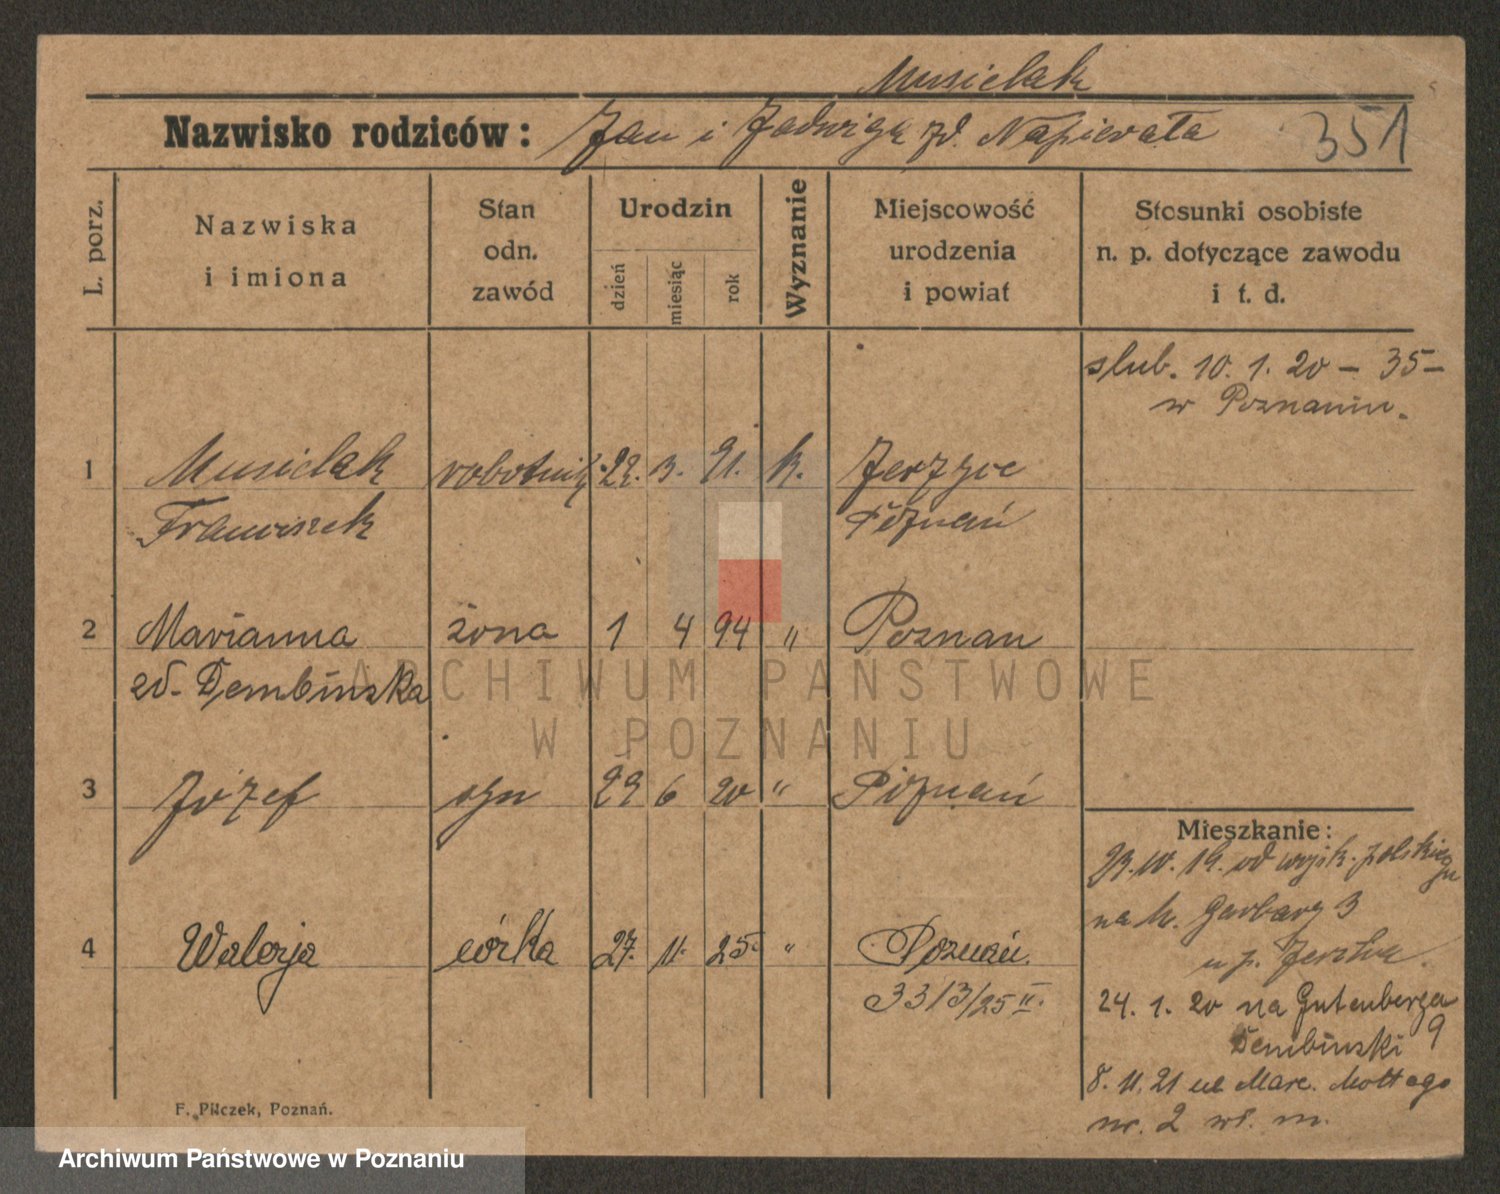 Musielak
Nazwisko rodziców: Jan i Jadwiga zd. Napierała 351
L. porz.
Nazwiska i imiona
Stan odn. zawód
Urodzin
dzień miesiąc rok
Wyznanie
Miejscowość urodzenia i powiat
Stosunki osobiste n. p. dotyczące zawodu i t. d.
slub. 10. 1. 20 – 35 –
w Poznaniu.
1 Musielak robotnik 3. 91. k. Jerzyce
Franciszek Poznań
2 Marianna żona 1 4 94 " Poznan
zd. Dembinska
3 Józef syn 6 20 " Poznań
Mieszkanie:
10. 19. od wojsk. polskiego
na Garbary 3
u p.
4 Walerja córka 27. 11. 25. " Poznań.
3313/25 II.
24. 1. 20 na Gutenberga
Dembinski 9
8. 11. 21 ul Marc. Mottego
nr. 2 wł. m.
F. Pilczek, Poznań.
ARCHIWUM PAŃSTWOWE
W POZNANIU
Archiwum Państwowe w Poznaniu